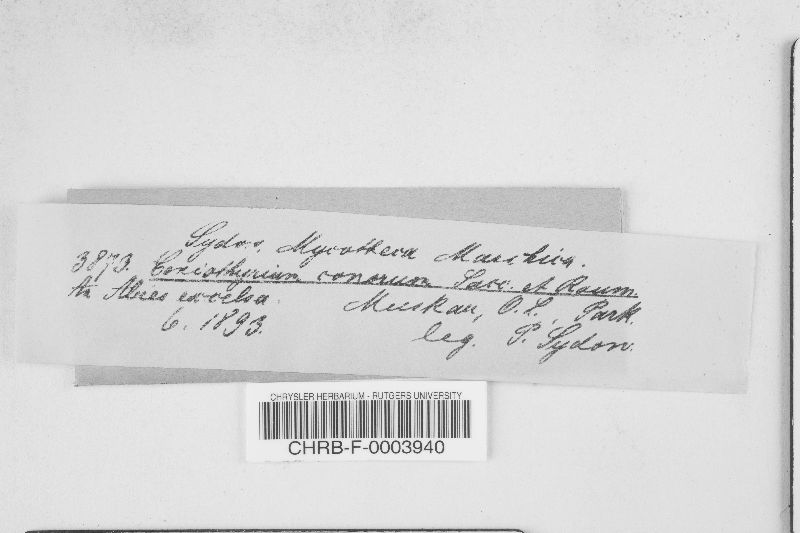 Sydow, Mycotheca Marchica.
3873. Coniothyrium conorum Sacc. et Roum.
An Abies excelsa. Muskau, O. L., Park.
6. 1893. leg. P. Sydow.
CHRYSLER HERBARIUM - RUTGERS UNIVERSITY
CHRB-F-0003940